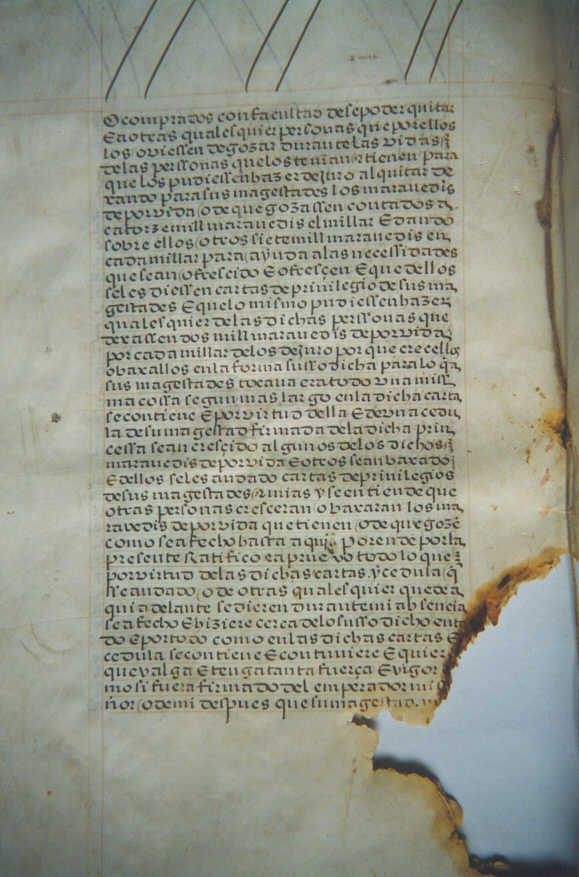 O comprados con facultad de se poder quitar
E a otras qualesquier personas que por ellos
los oviessen de gozar durante las vidas
de las perssonas que los tenian r tienen para
que los pudiessen hazer de juro al quitar de
xando para sus magestades los maravedis
de por vida o de que gozassen contados a
catorze mill maravedis el millar E dando
sobre ellos otros siete mill maravedis en
cada millar para ayuda a las necessidades
que se an ofrescido E ofresçen E que dellos
seles diessen cartas de privilegio de sus ma
gestades E que lo mismo pudiessen hazer
qualesquier de las dichas perssonas que
dexassen dos mill maravedis de por vida
por cada millar de los de juro por que crecellos
o baxallos en la forma susso dicha para lo q a
sus magestades tocava era todo una mis
ma cossa segun mas largo en la dicha carta
se contiene E por virtud della E de una cedu
la de su magestad firmada de la dicha prin
cessa sean cresçido algunos de los dichos
maravedis de por vida E otros sean baxado
E dellos seles an dado cartas de privilegios
de sus magestades r mias y se entiende que
otras personas cresceran o baxaran los ma
ravedis de por vida que tienen o de que gozē
como se a fecho hasta aqui por ende por la
presente Ratifico r aprueVo todo lo que
por virtud de las dichas cartas y cedula q
se an dado o de otras quales quier que de a
qui adelante se dieren durante mi absencia
sea fecho E hiziere cerca de lo susso dicho en to
do E por todo como en las dichas cartas E
cedula se contiene E contuviere E quier
que valga E tenga tanta fuerça E vigor
mo si fuera firmado del emperador mi
ñor o de mi despues que su magestad